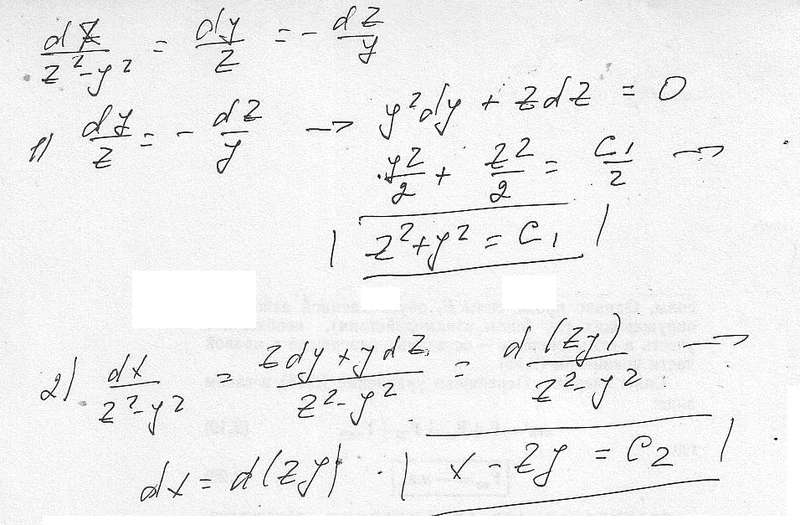 dx/(z²-y²) = dy/z = - dz/y
1) dy/z = - dz/y → y²dy + zdz = 0
y²/2 + z²/2 = C₁/2 →
| z²+y² = C₁ |
2) dx/(z²-y²) = (zdy + ydz)/(z²-y²) = d(zy)/(z²-y²) →
dx = d(zy) . | x - zy = C₂ | .